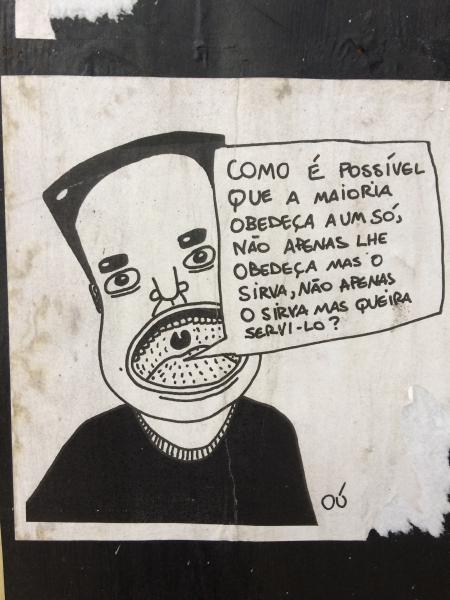 COMO É POSSÍVEL
QUE A MAIORIA
OBEDEÇA A UM SÓ,
NÃO APENAS LHE
OBEDEÇA MAS O
SIRVA, NÃO APENAS
O SIRVA MAS QUEIRA
SERVI-LO?
OÚ